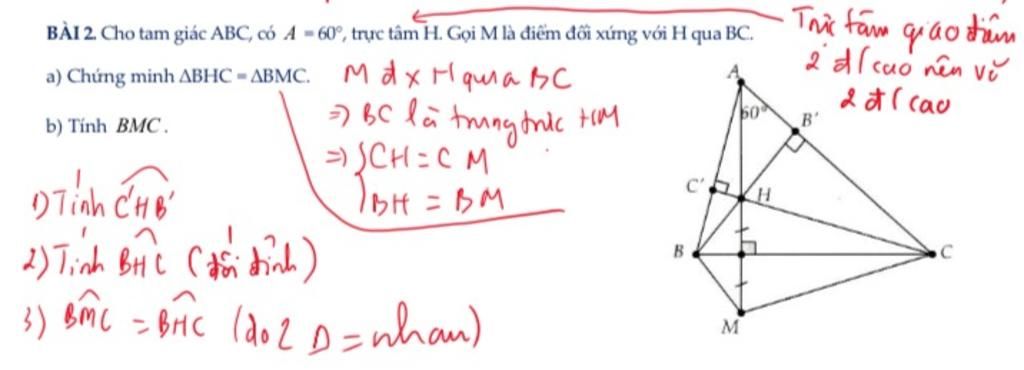 BÀI 2. Cho tam giác ABC, có A = 60°, trực tâm H. Gọi M là điểm đối xứng với H qua BC.
Trực tâm giao điểm
2 đ/cao nên vẽ
2 đ/cao
a) Chứng minh ΔBHC = ΔBMC.
M đx H qua BC
⇒ BC là trung trực HM
b) Tính BMC.
⇒ { CH = CM
BH = BM
1) Tính C'HB'
2) Tính BHC (đối đỉnh)
3) BMC = BHC (do 2 Δ = nhau)
A
60°
B'
C'
H
B
C
M